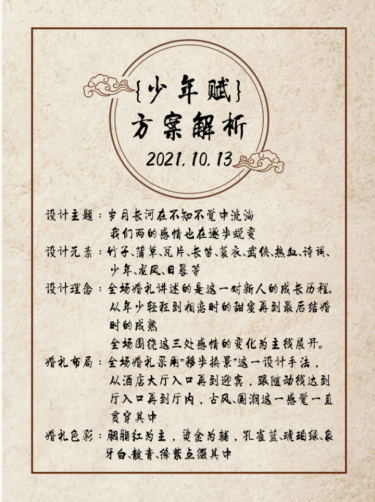 {少年赋}
方案解析
2021.10.13
设计主题：岁月长河在不知不觉中流淌
我们两的感情也在逐步蜕变
设计元素：竹子、蒲草、瓦片、长笛、蓑衣、武侠、热血、诗词、
少年、龙凤、日晷等
设计理念：全场婚礼讲述的是这一对新人的成长历程。
从年少轻狂到相恋时的甜蜜再到最后结婚
时的成熟
全场围绕这三处感情的变化为主线展开。
婚礼布局：全场婚礼采用“移步换景”这一设计手法，
从酒店大厅入口再到迎宾，跟随动线达到
厅入口再到厅内，古风、国潮这一感觉一直
贯穿其中
婚礼色彩：胭脂红为主，烫金为辅，孔雀蓝、琥珀绿、象
牙白、靛青、绛紫点缀其中